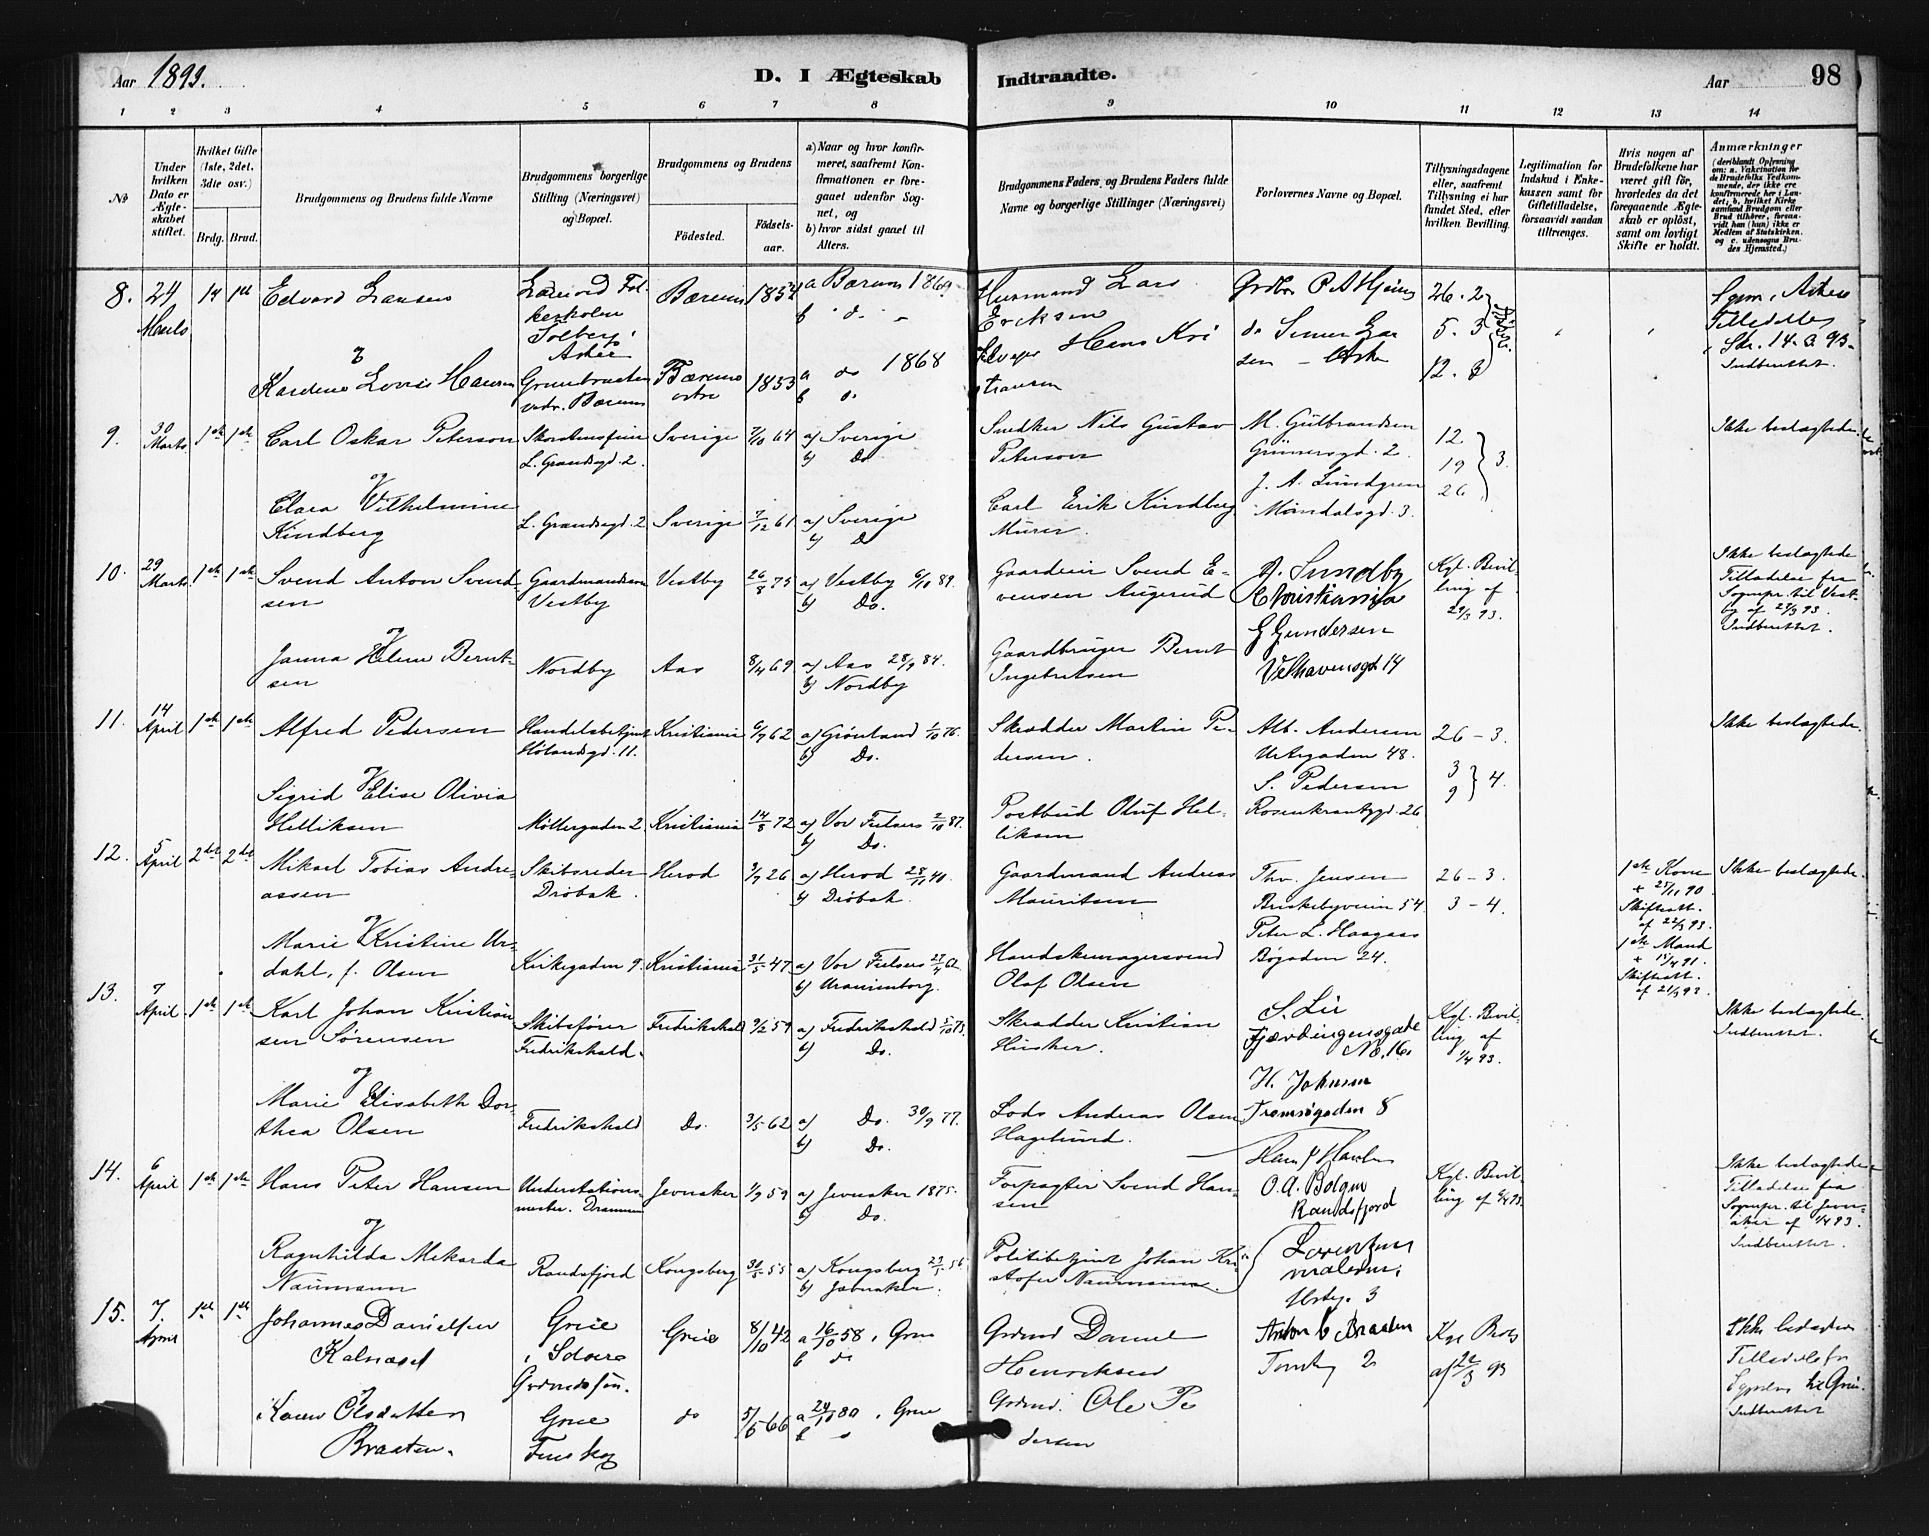 Aar 1893.
D. I Ægteskab
Indtraadte.
Aar
98
1 2 3 4 5 6 7 8 9 10 11 12 13 14
No
Under hvilken Dato er Ægteskabet stiftet.
Hvilket Gifte (1ste, 2det, 3die osv.)
Brdg. Brud.
Brudgommens og Brudens fulde Navne
Brudgommens borgerlige Stilling (Næringsvei) og Bopæl.
Brudgommens og Brudens
Fødested.
Fødselsaar.
a) Naar og hvor konfirmeret, saafremt Konfirmationen er foregaaet udenfor Sognet, og
b) hvor sidst gaaet til Alters.
Brudgommens Faders og Brudens Faders fulde Navne og borgerlige Stillinger (Næringsvei)
Forlovernes Navne og Bopæl.
Tillysningsdagene eller, saafremt Tillysning ei har fundet Sted, efter hvilken Bevilling.
Legitimation for Indskud i Enkekassen samt for Giftetilladelse, forsaavidt saadan tiltrænges.
Hvis nogen af Brudefolkene har været gift før, hvorledes da det foregaaende Ægteskab er opløst, samt om lovligt Skifte er holdt.
Anmærkninger
8. 24 Marts
Edvard Larsen
Bærum 1854
a Bærum 1869
b do
Husmand Lars Ericksen
26. 2
5. 3
12. 3
Indberettet.
Kardine Lovise Hansen
Bærum 1853
a do 1868
b do
Hans Kristiansen
9. 30 Marts 1ste 1ste
Carl Oskar Peterson
L. Grændsegd. 2.
Sverige 7/10 64
a) Sverige
b) Do
Snedker Nils Gustav Peterson
M. Gulbrandsen
Grünersgd. 2.
12 19 26 } 3.
Ikke beslægtede.
og
Clara Vilhelmine Kindberg
L. Grændsegd. 2
Sverige 7/12 61
a) Sverige
b) Do
Carl Erik Kindberg
Murer.
J. A. Lundgren
Mandalsgd. 3.
10. 29 Marts 1ste 1ste
Svend Anton Svendsen
Gaardmandssøn
Vestby
Vestby 26/8 75
a) Vestby 6/10 89.
b) Do.
Gaardeier Svend Evensen Augerud
A. Sundby
Christiania
Kgl. Bevilling af 29/3 93.
Ikke beslægtede
Tilladelse fra Sognepr. til Vestby af 27/3 93.
Indberettet.
og
Janna Helene Berntsen
Nordby
Aas 8/4 69
a) Aas 28/9 84.
b) Nordby
Gaardbruger Bernt Ingebretsen
G Gundersen
Velhavensgd 14
11. 14 April 1ste 1ste
Alfred Pedersen
Handelsbetjent
Hølandsgd. 11.
Kristiania 6/9 62
a) Grønland 1/10 76.
b) Do.
Skrædder Martin Pedersen.
Alb. Andersen
Urtegaden 48.
26 - 3.
3 9 } 4.
Ikke beslægtede.
og
Sigrid Elise Olivia Helliksen
Møllergaden 2
Kristiania 14/8 72
a) Vor Frelsers 2/10 87.
b) Do.
Postbud Oluf Helliksen
S. Pedersen
Rosenkrantzgd. 26
12. 5 April 2det 2det
Mikael Tobias Andreassen
Skibsreder
Drøbak.
Herod 3/9 26
a) Herod 28/11 40.
b) Drøbak.
Gaardmand Andreas Mauritsen
Thv. Jensen
Briskebyveien 54.
26 - 3.
3 - 4.
1ste Kone + 25/11 90
Skifteatt. af 22/3 93.
Ikke beslægtede.
og
Marie Kristine Urdahl, f. Olsen
Kirkegaden 9.
Kristiania 31/5 47
a) Vor Frelsers 27/4 62
b) Uranienborg.
Handskemagersvend Olaf Olsen
Peter L. Haagaas
Bøgaden 24.
1ste Mand + 15/4 91.
Skifteatt. af 21/3 93.
13. 7 April 1ste 1ste
Karl Johan Kristiansen Sørensen
Skibsfører
Fredrikshald.
Fredrikshald 9/2 59
a) Fredrikshald 5/10 73.
b) Do.
Skrædder Kristian
S. Lie
Fjerdingensgade No. 16.
Kgl. Bevilling af 1/4 93.
Ikke beslægtede.
Indberettet.
og
Marie Elisabeth Dorthea Olsen
Fredrikshald
Do. 3/5 62
a) Do. 30/9 77.
b) Do.
Lods Andreas Olsen Hagelund.
H. Johnsen
Tromsøgaden 8
14. 6 April 1ste 1ste
Hans Peter Hansen
Understationsmester. Drammen
Jevnaker 1/9 59
a) Jevnaker 1875.
b) Do.
Forpagter Svend Hansen
O. A. Bolgen
Randsfjord
Kgl. Bevilling af 6/4 93.
Ikke beslægtede
Tilladelse fra Sognepr. til Jevnaker af 1/4 93.
Indberettet.
og
Ragnhilda Mekarda Naumann
Randsfjord
Kongsberg 30/5 55
a) Kongsberg
b) Jævnaker.
Politibetjent Johan Kristofer Naumann.
15. 7. April 1ste 1ste
Johannes Danielsen
Grue
i Solør
Grue 8/10 42
a 16/10 58 i Grue
b do
Daniel Henriksen
Anton C Braaten
2
Kgl Bev af 22/3 93
Ikke beslægtede
Tilladelse fra
til Grue.
Indberettet
Karen Olsdatter Braaten.
Grue Finskog
do 5/5 66
a 24/10 80 i Grue
b
Ole Pedersen